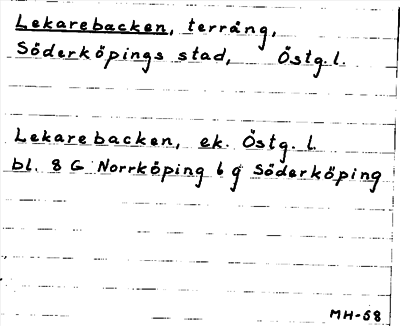 Lekarebacken, terräng,
Söderköpings stad, Östg.l.
Lekarebacken, ek. Östg. l.
bl. 8 G Norrköping 6 g Söderköping
MH-68